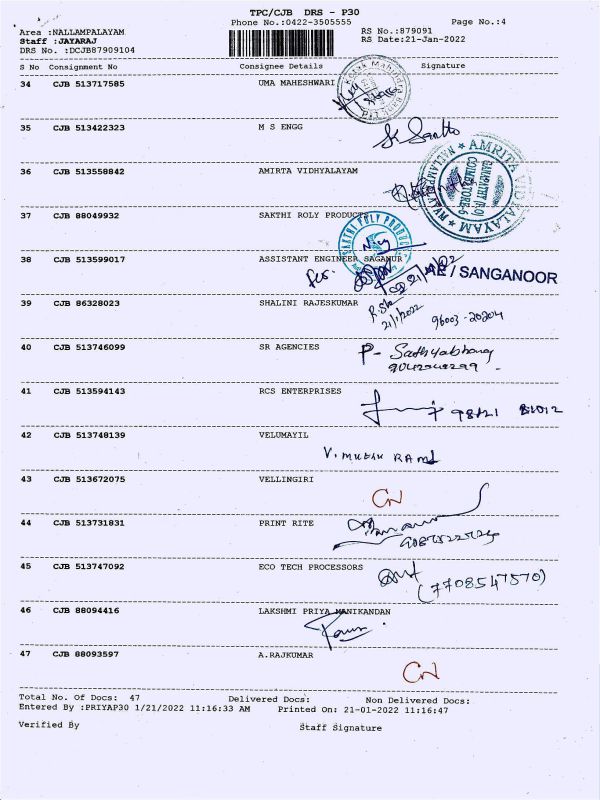 TPC/CJB DRS - P30
Phone No.:0422-3505555 Page No.:4
Area :NALLAMPALAYAM RS No.:879091
Staff :JAYARAJ RS Date:21-Jan-2022
DRS No. :DCJB87909104
S No Consignment No Consignee Details Signature
34 CJB 513717585 UMA MAHESHWARI
35 CJB 513422323 M S ENGG
36 CJB 513558842 AMIRTA VIDHYALAYAM
AMRITA VIDYALAYAM
NALLAMPALAYAM
GANPATHY (P.O)
COIMBATORE-6
37 CJB 88049932 SAKTHI ROLY PRODUCTS
SAKTHI POLY PRODUCTS
38 CJB 513599017 ASSISTANT ENGINEER SAGANUR
AE / SANGANOOR
39 CJB 86328023 SHALINI RAJESKUMAR
21/1/2022 96003-20204
40 CJB 513746099 SR AGENCIES
41 CJB 513594143 RCS ENTERPRISES
42 CJB 513748139 VELUMAYIL
43 CJB 513672075 VELLINGIRI
44 CJB 513731831 PRINT RITE
45 CJB 513747092 ECO TECH PROCESSORS
(7708547570)
46 CJB 88094416 LAKSHMI PRIYA MANIKANDAN
47 CJB 88093597 A.RAJKUMAR
Total No. of Docs: 47 Delivered Docs: Non Delivered Docs:
Entered By :PRIYAP30 1/21/2022 11:16:33 AM Printed On: 21-01-2022 11:16:47
Verified By Staff Signature